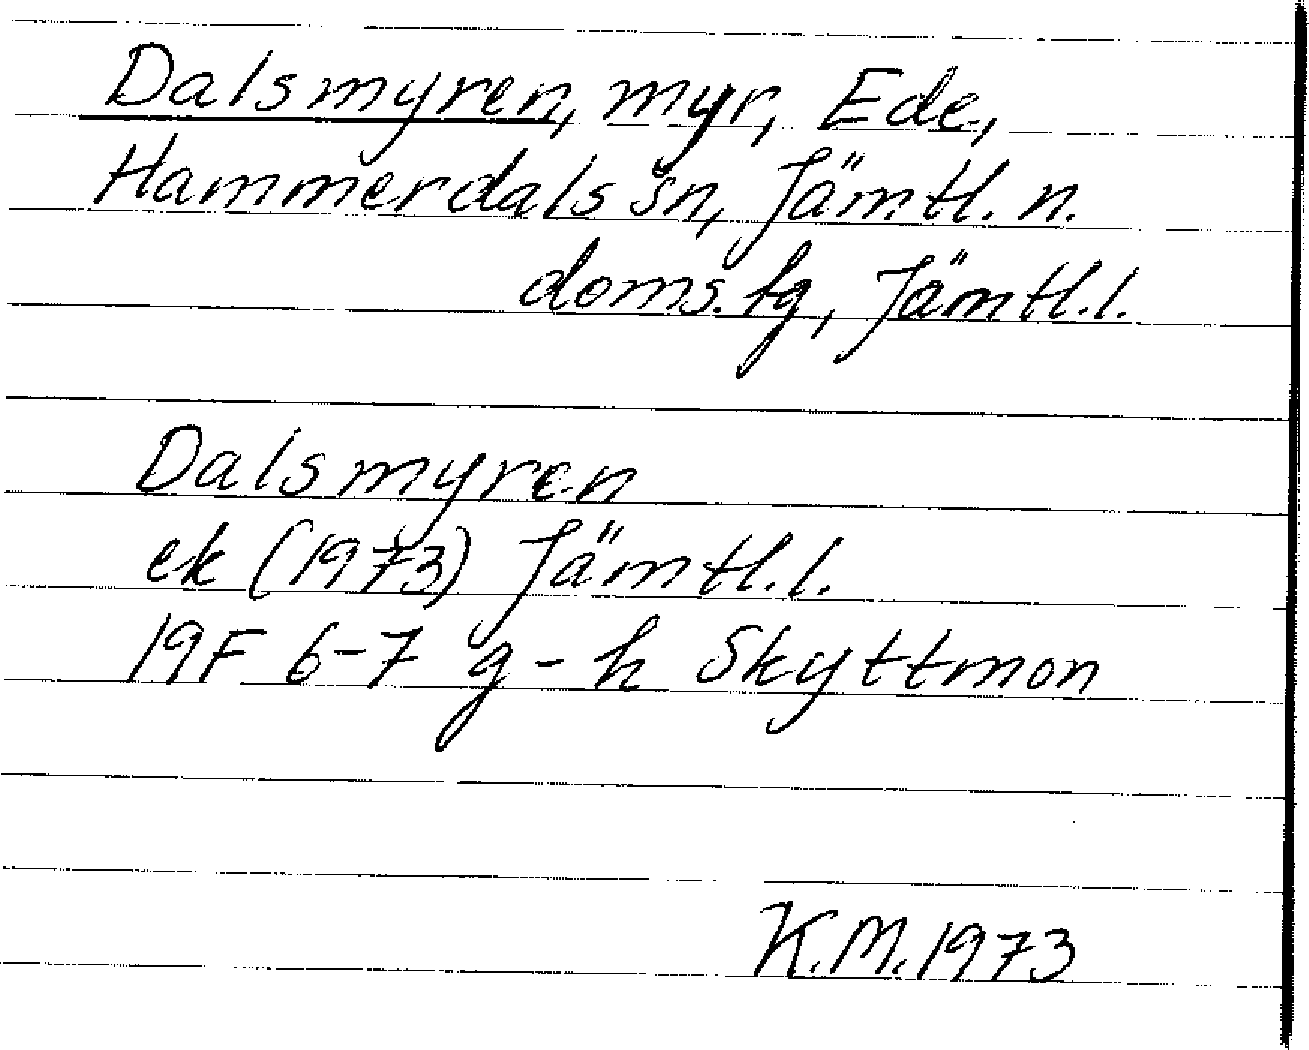 Dalsmyren, myr, Ede,
Hammerdals sn, Jämtl. n.
doms. fg, Jämtl. l.
Dalsmyren
ek (1973) Jämtl. l.
19F 6-7 g-h Skyttmon
K.M. 1973